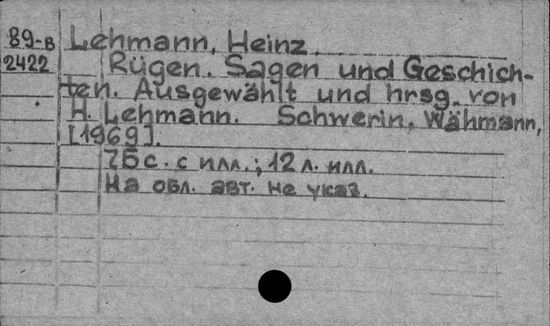 89-в Lehmann, Heinz.
2422 Rügen. Sagen und Geschich-
ten. Ausgewählt und hrsg. von
H. Lehmann. Schwerin, Wähmann,
[1969].
75 с. с илл.; 12 л. илл.
На обл. авт. не указ.